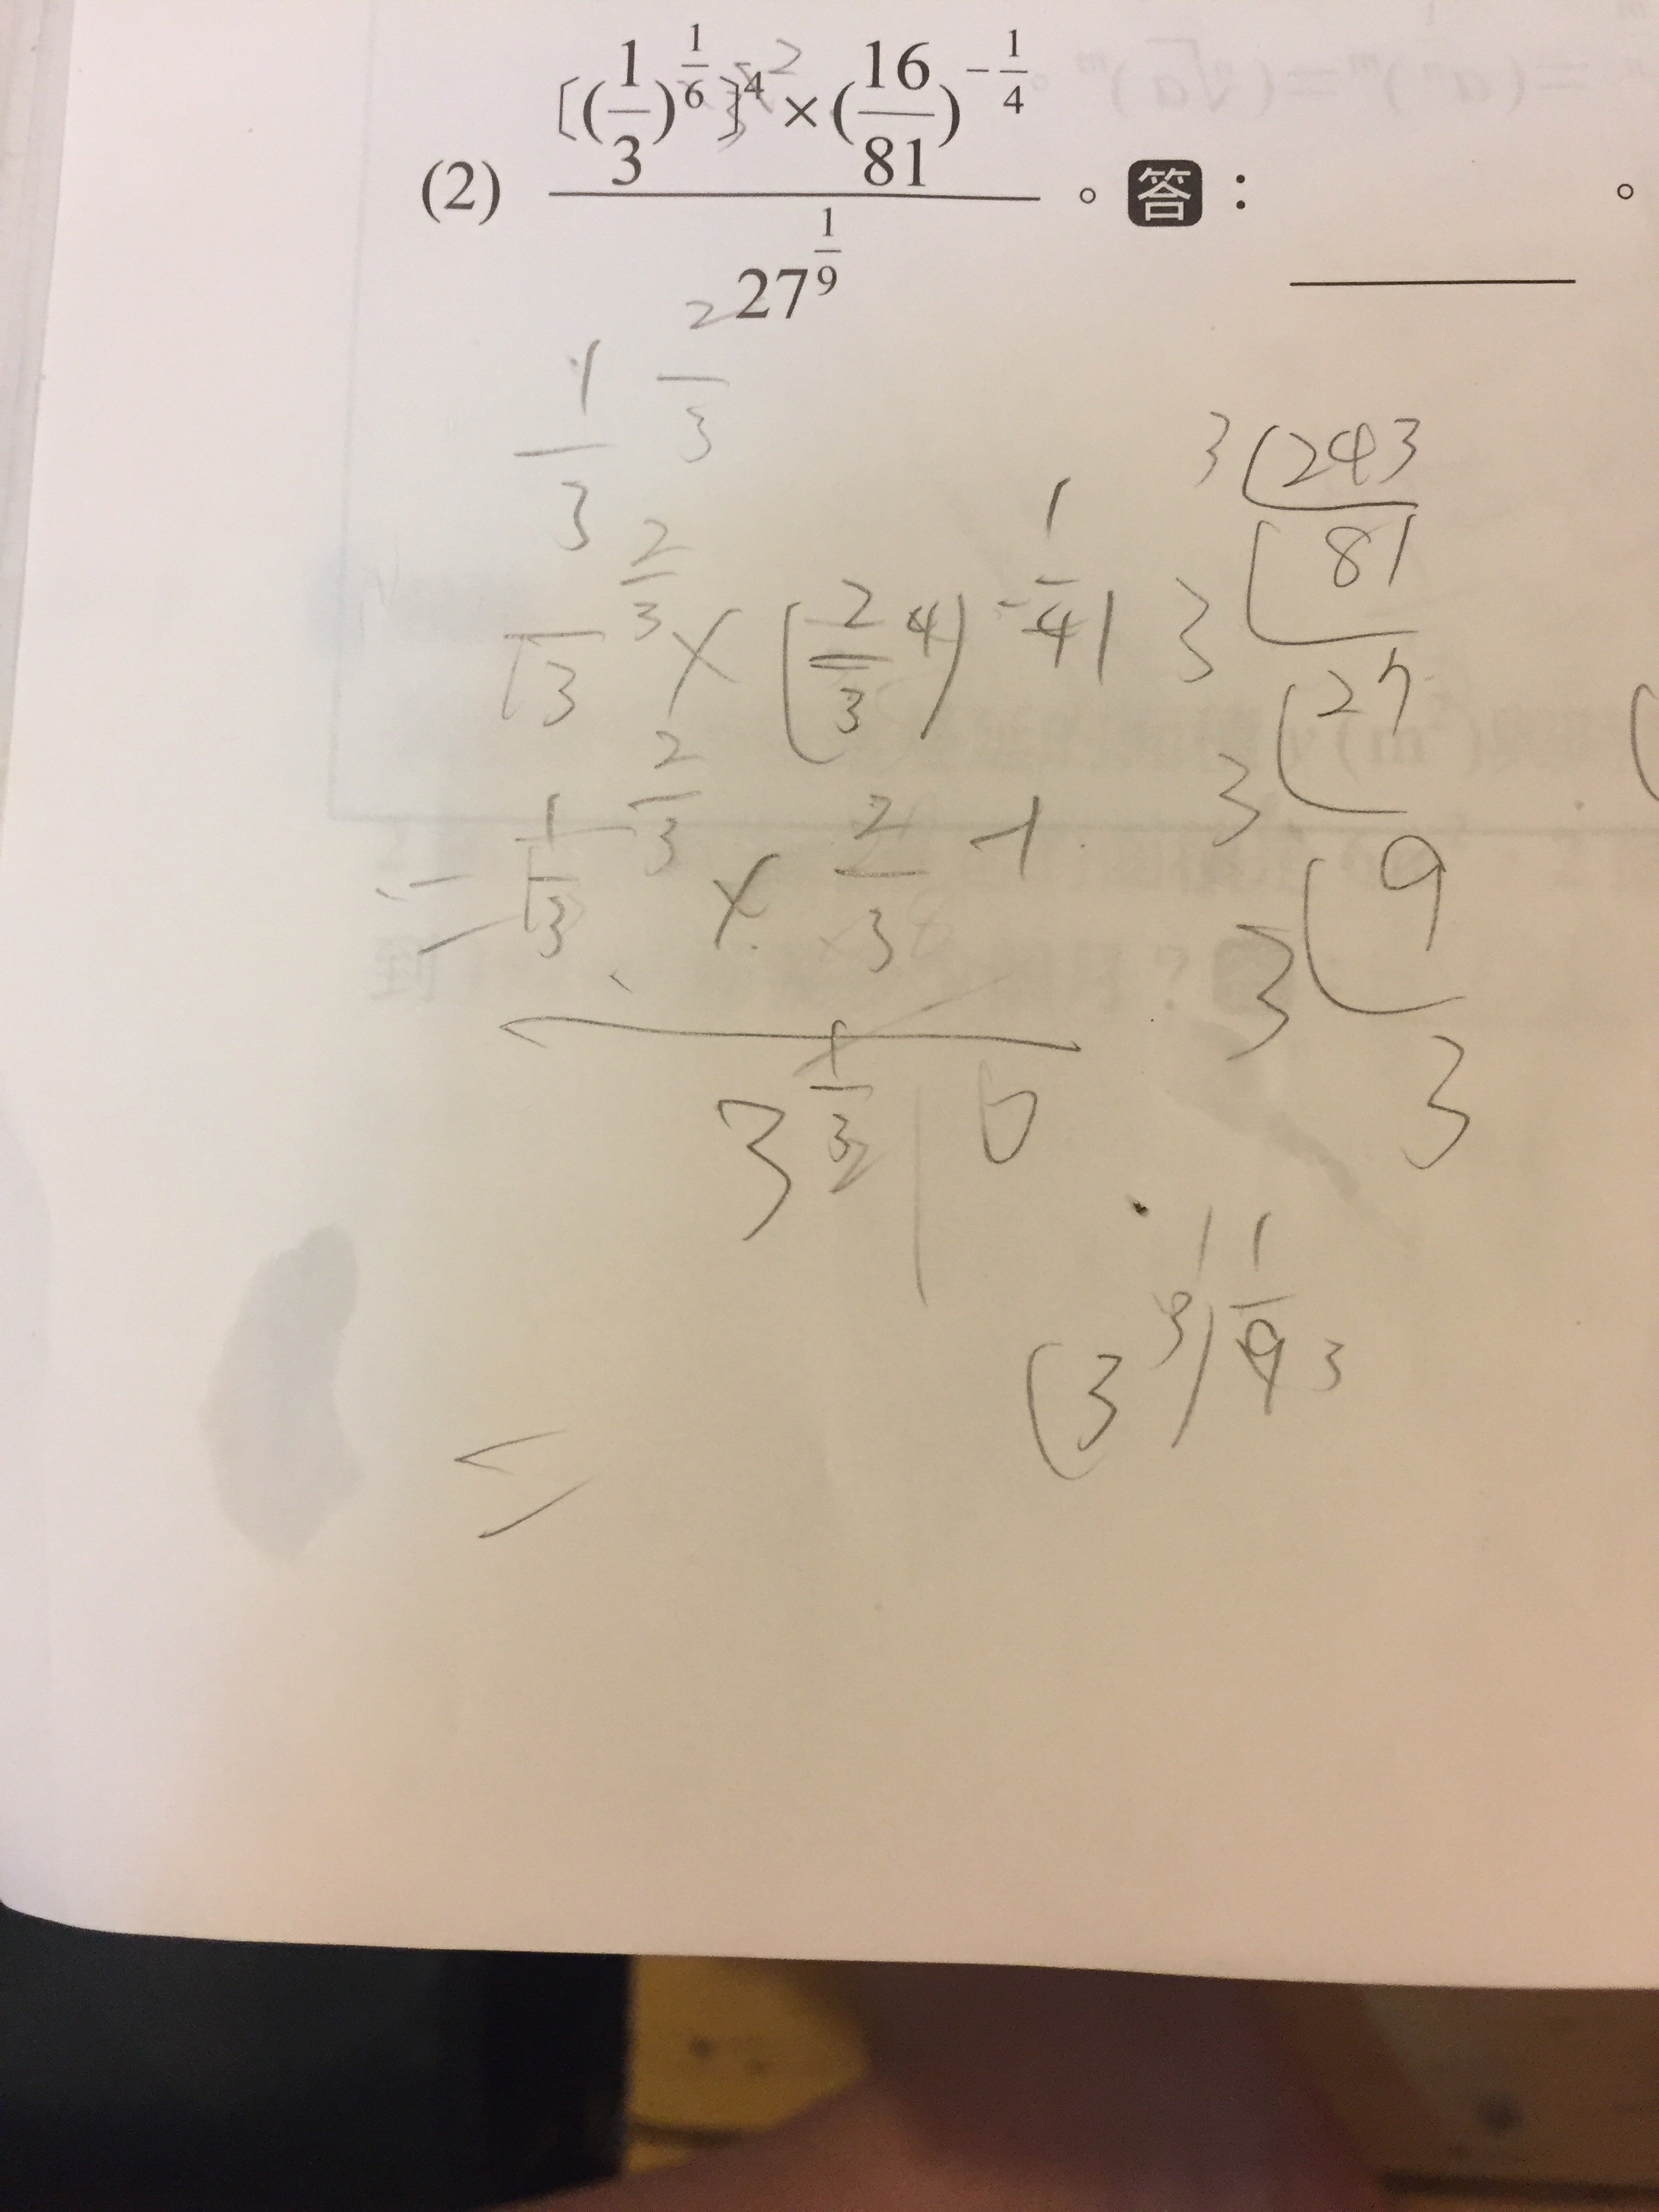 (2) \frac{〔(\frac{1}{3})^{\frac{1}{6}}〕^4×(\frac{16}{81})^{-\frac{1}{4}}}{27^{\frac{1}{9}}}。答：______。
\frac{1}{3} \frac{2}{3}
\frac{}{3}^{\frac{2}{3}} × (\frac{2}{3}^4)^{-\frac{1}{4}}
= \frac{\frac{1}{3}^{\frac{2}{3}} × \frac{2}{3}^{-1}}{3^{\frac{1}{3}}}
=
3 243
3 81
3 27
3 9
3
(3^3)^{\frac{1}{9}} 3